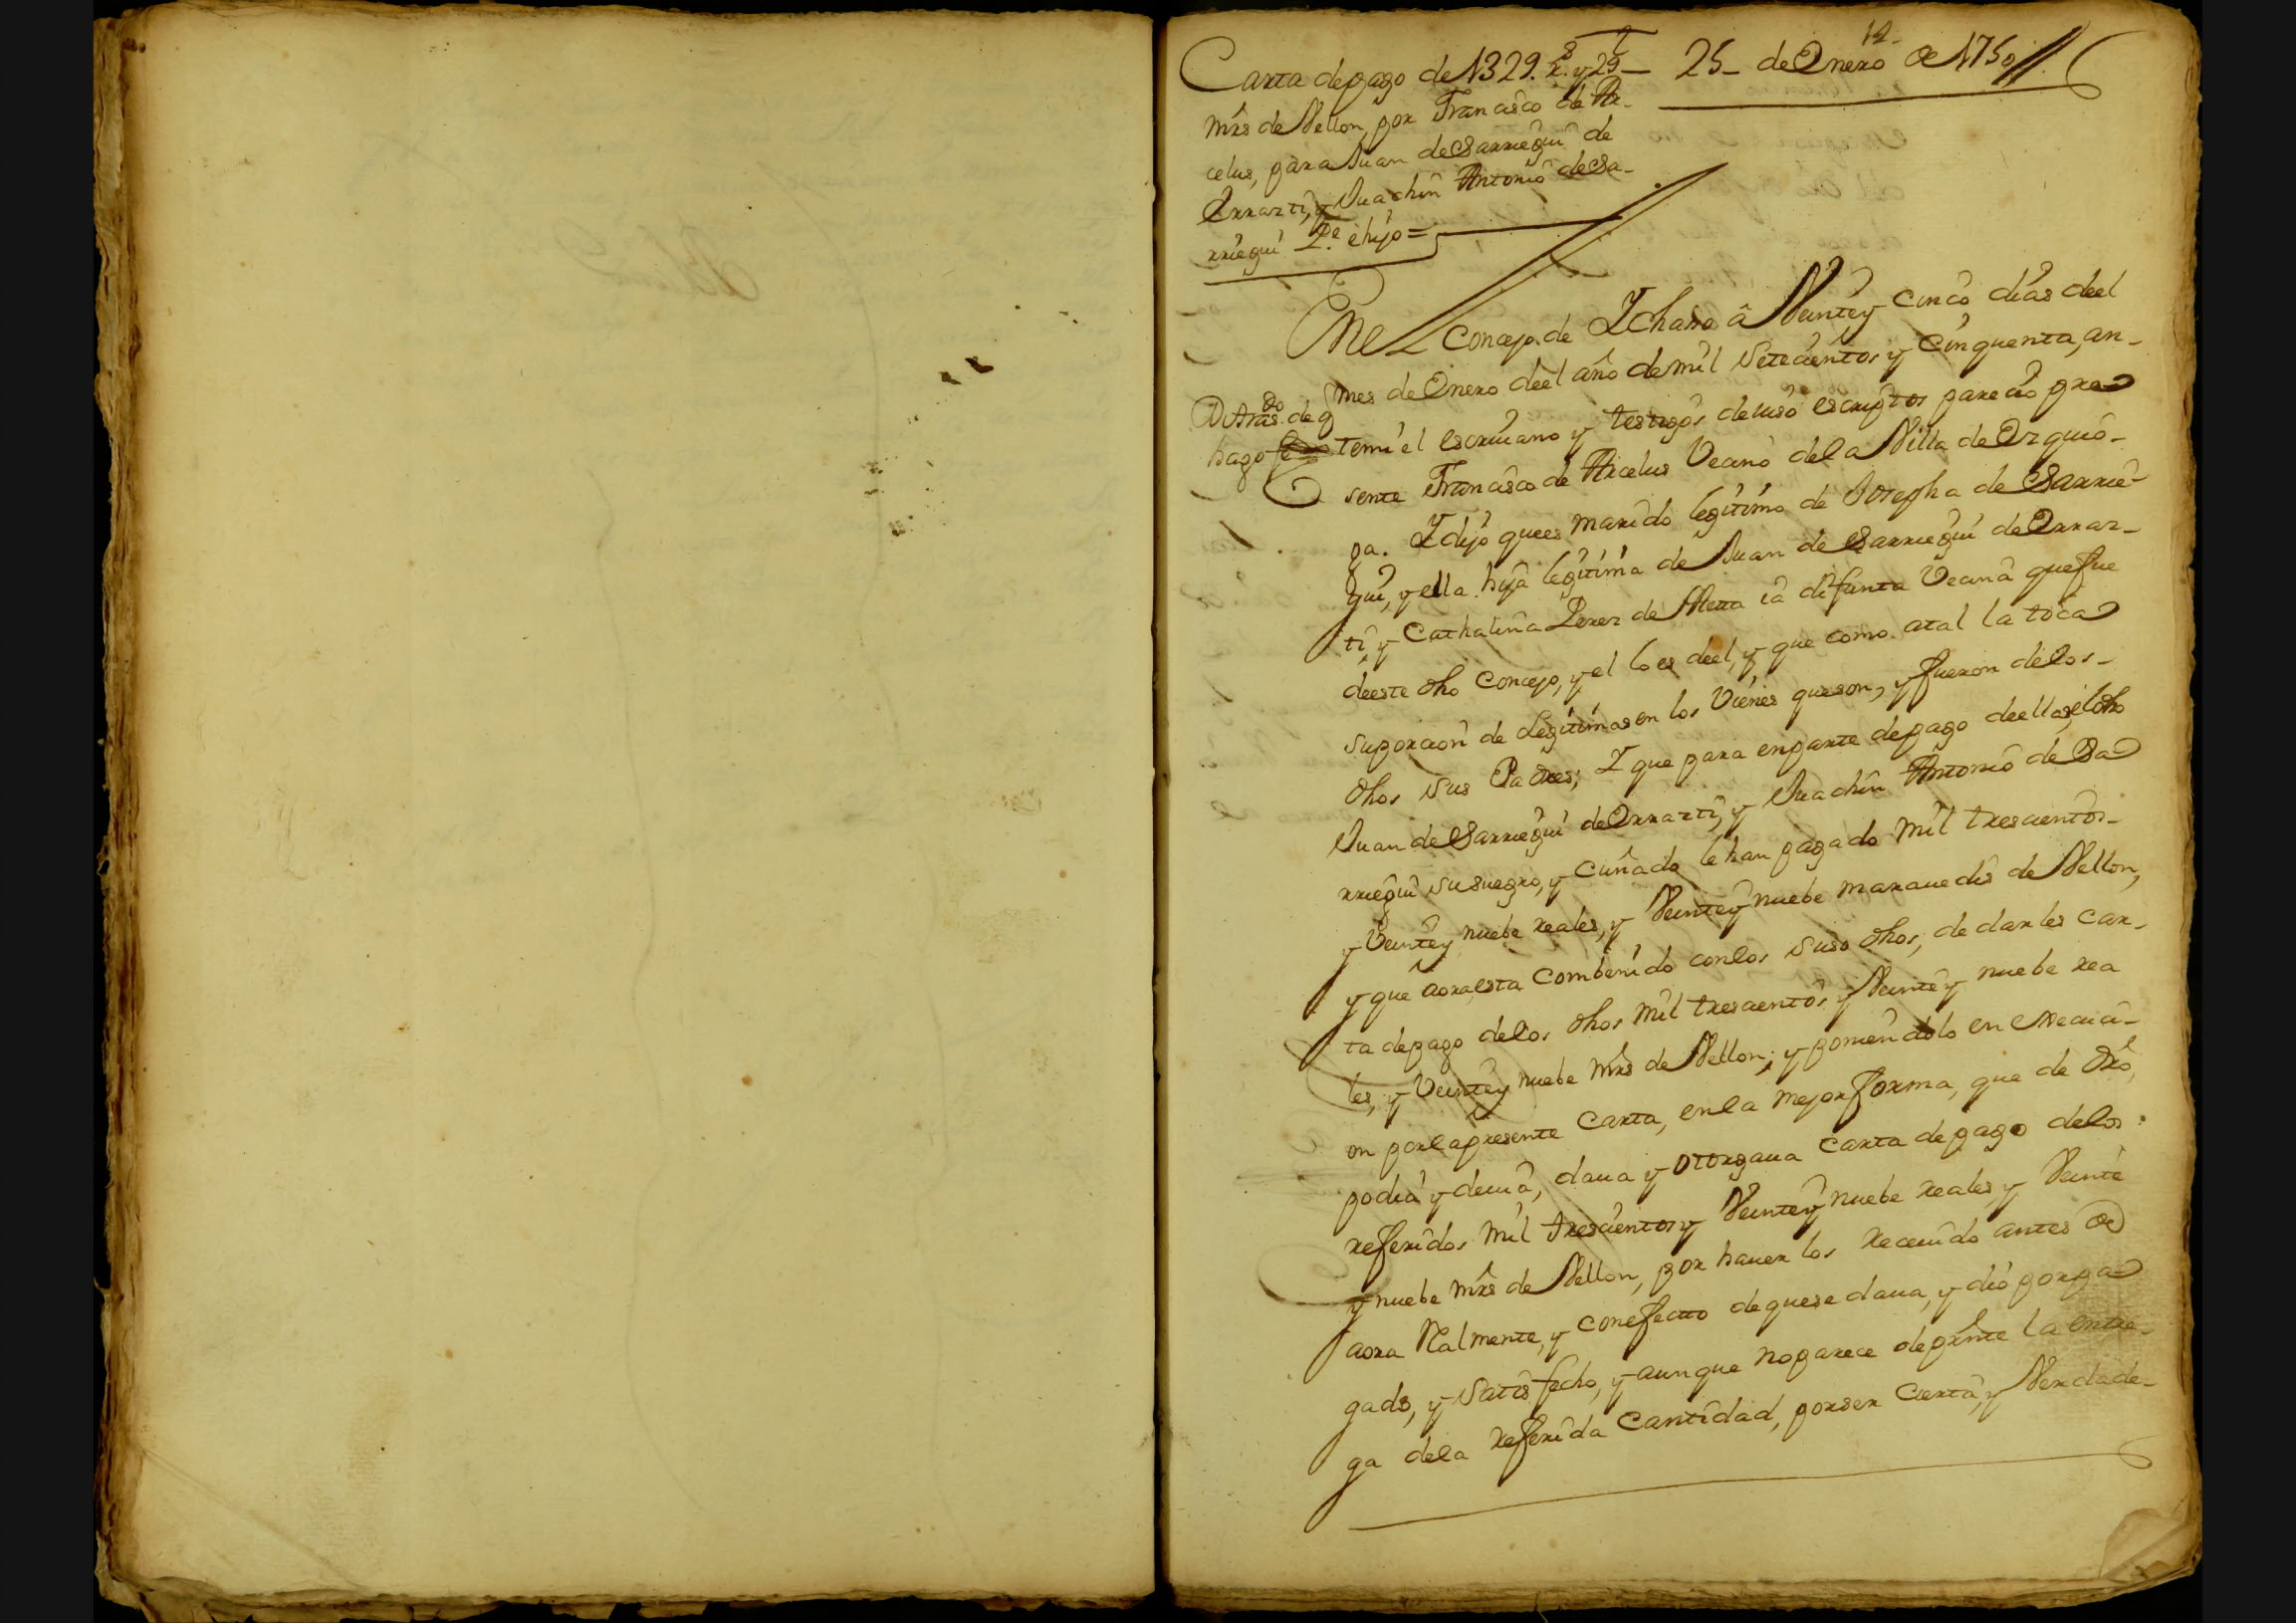 12
Carta de pago de 1329. rs. y 29 — 25 — de Enero de 1750
mrs de Vellon, por Francisco de Ar-
celus, para Juan de Sarriegui de
Errazti, y Juachin Antonio de Sa-
rriegui Pe. è hijo =
En el Concejo de Ichaso â Veinte y cinco dias de el
mes de Enero de el año de mil Setecientos y Cinquenta, an-
te mi el escriuano y testigos de iuso escriptos parecio pre
sente Francisco de Arcelus Vecino de la Villa de Ezquio-
ga. Y dijo que es marido legitimo de Josepha de Sarrie-
gui, y ella hija legitima de Juan de Sarriegui de Erraz-
ti, y Cathalina Perez de ia difunta Vecina que fue
de este dho Concejo, y el lo es de el, y que como atal la toca
su porcion de Legitimas en los Vienes que son, y fueron de los
dhos sus Padres; Y que para en parte de pago de ellas, el dho
Juan de Sarriegui de Errazti, y Juachin Antonio de Sa
rriegui su suegro, y Cuñado le han pagado mil trescientos
y Veinte y nuebe reales, y Veinte y nuebe marauedis de Vellon,
y que aora esta combenido con los suso dhos, de darles Car-
ta de pago de los dhos mil trescientos y Veinte y nuebe rea
les, y Veinte y nuebe mrs de Vellon; y poniendolo en execuci-
on por la presente Carta, en la mejor forma, que de dro,
podia y deuia, daua y otorgaua Carta de pago de los
referidos mil trescientos y Veinte y nuebe reales y Veinte
y nuebe mrs de Vellon, por hauer los receuido antes de
aora Realmente, y con efecto de que se daua, y dio por pa
gado, y Satisfecho, y aunque no parece de prnte la entre-
ga de la referida Cantidad, por ser Cierta, y Verdade-
de q
hago